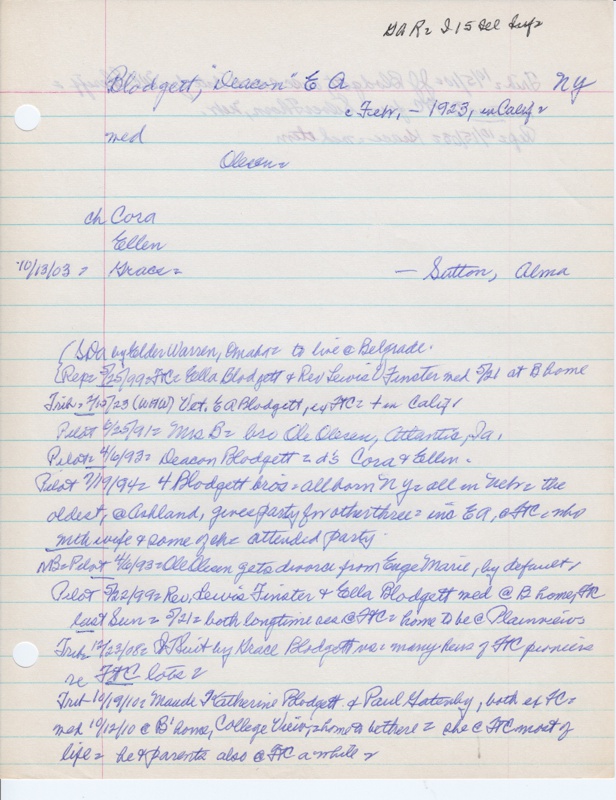 Blodgett, "Deacon" E A NY
c Feb, – 1923, in Calif =
med
Olesen =
ch Cora
Ellen
10/13/03 = Grace = — Sutton, Alma
by Elder Warren, Omaha = to live @ Belgrade.
Rep = 5/25/99 = FC = Ella Blodgett & Rev Lewis Finster med 5/21 at B home
Trib = 2/15/23 (WHW) Vet. E A Blodgett, ex FC = + in Calif
Pilot 6/25/91 = Mrs B = bro Ole Olesen, Atlantic, Ia.
Pilot = 4/6/93 = Deacon Blodgett = d's Cora & Ellen =
Pilot 7/19/94 = 4 Blodgett bros = all born NY = all in Nebr = the
oldest, @ Ashland, gives party for other three = inc E A, @ FC = who
with wife & some of ch = attended party.
NB = Pilot 4/6/93 = Ole Olesen gets divorce from Enge Marie, by default
Pilot 5/22/99 = Rev. Lewis Finster & Ella Blodgett med @ B home, FC
last Sun = 5/21 = both longtime res @ FC = home to be @ Plainview
Trib = 12/23/08 = Suit by Grace Blodgett vs = many heirs of FC pioneers
re FC lots =
Trib 10/19/10 = Maude Katherine Blodgett & Paul Gatenby, both ex FC =
med 10/12/10 @ B home, College View = home to be there = she @ FC most of
life = he & parents also @ FC a while =